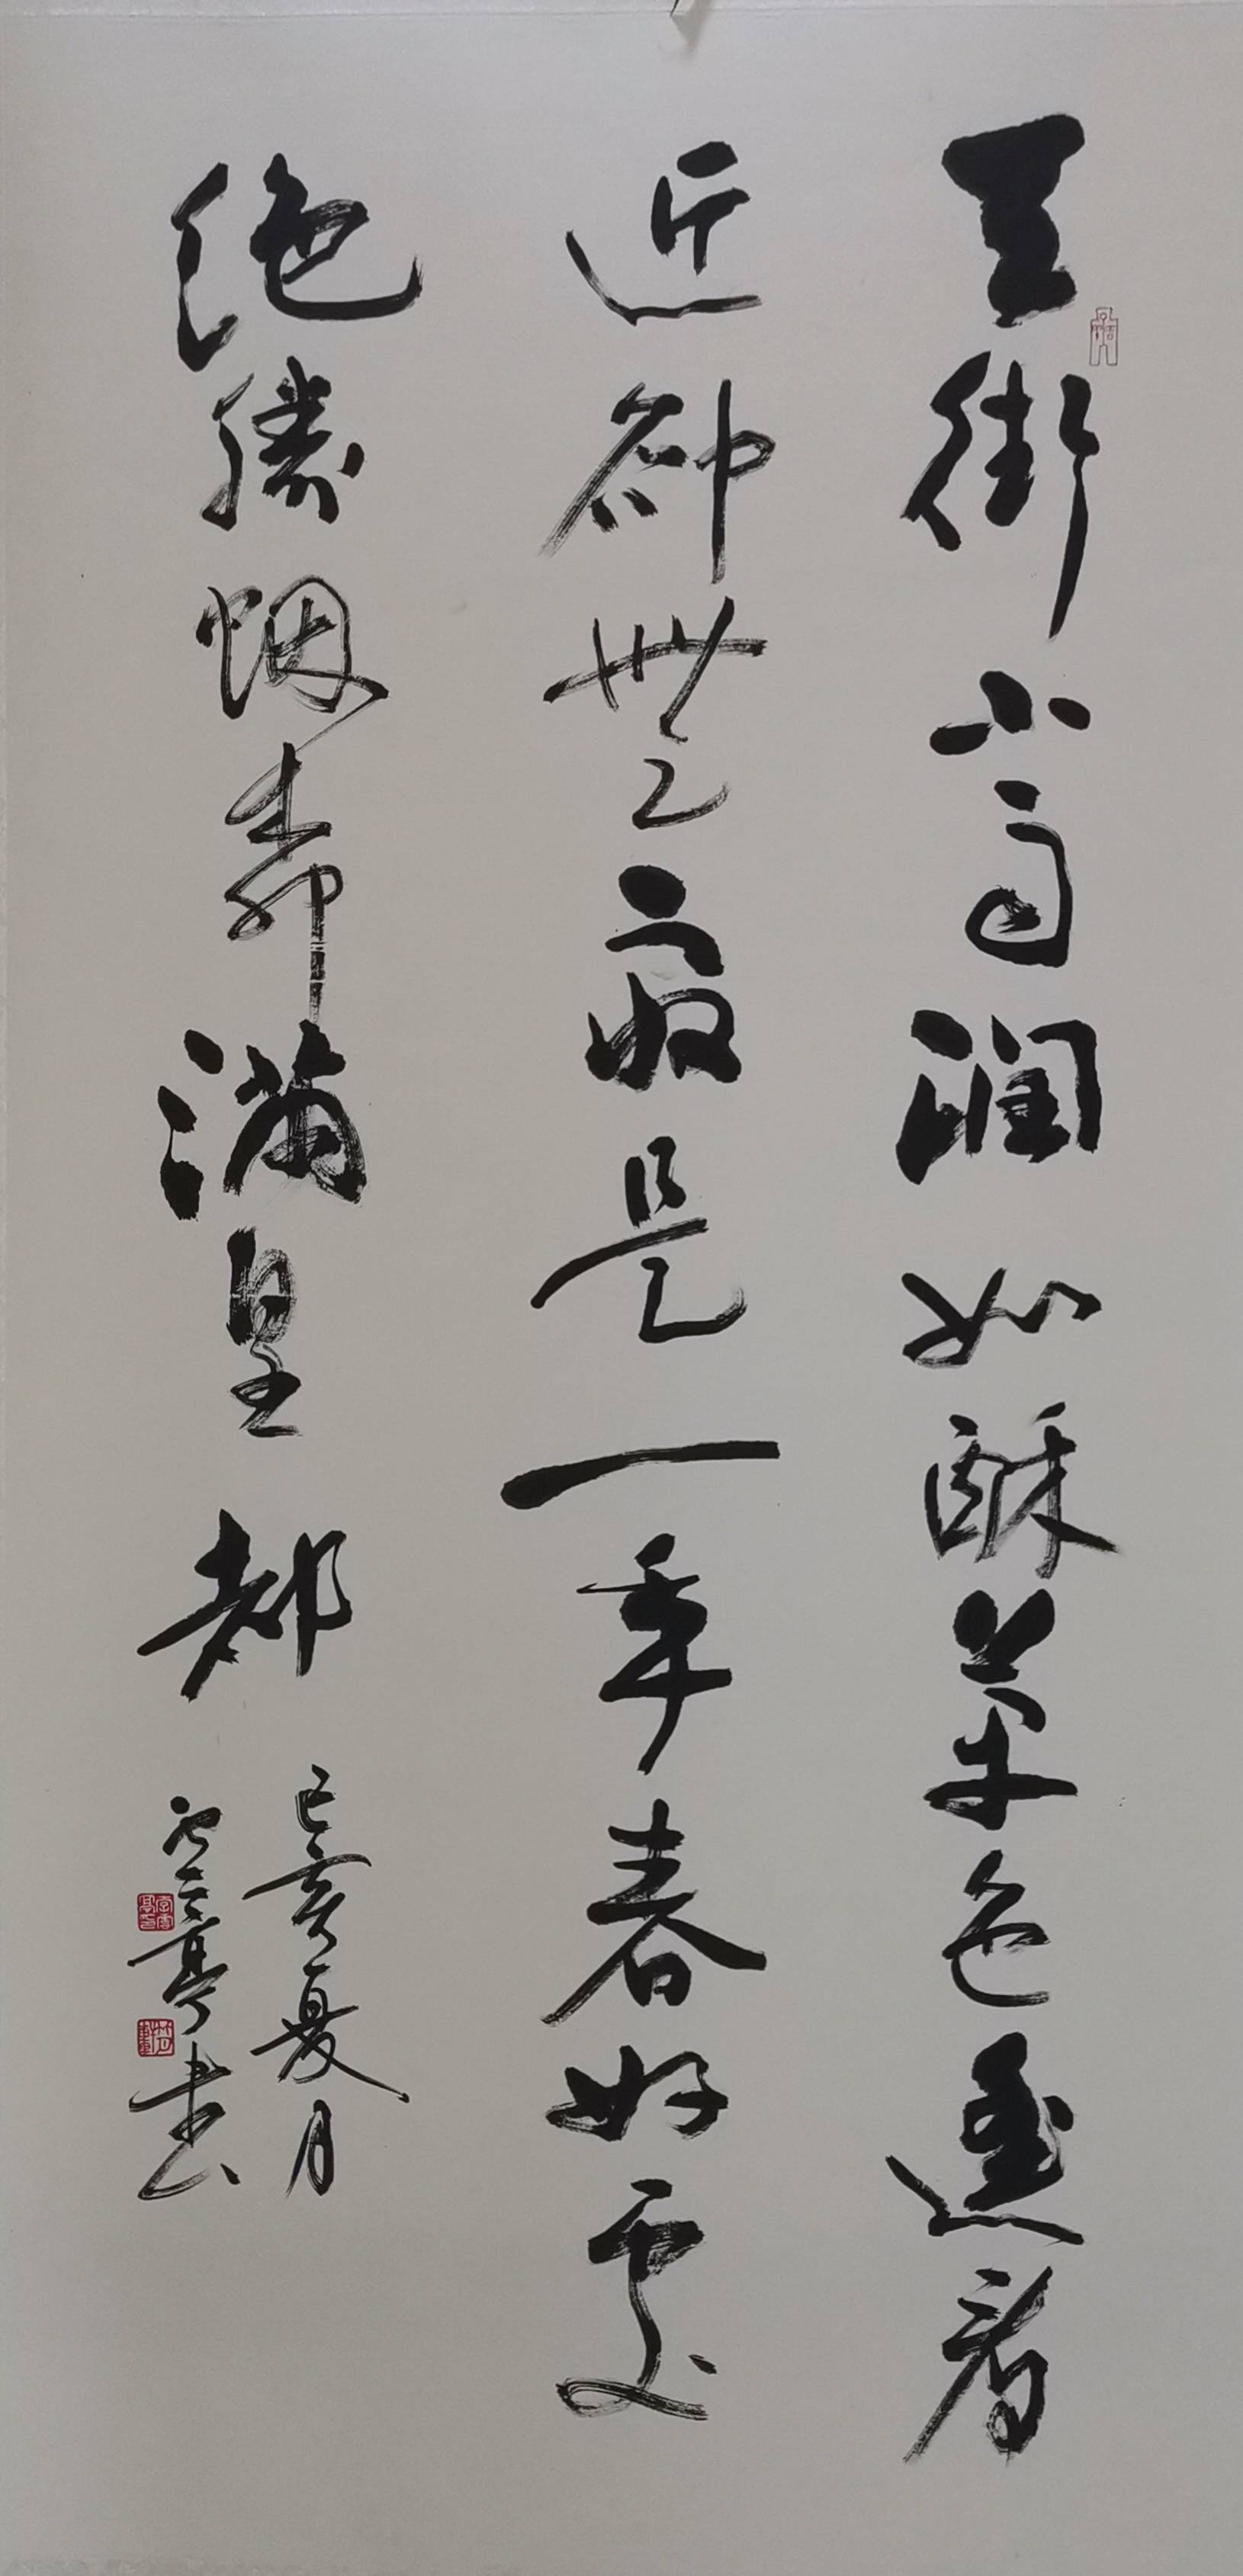 天街小雨润如酥草色遥看
近却无最是一年春好处
绝胜烟柳满皇都
己亥夏月
云亭书